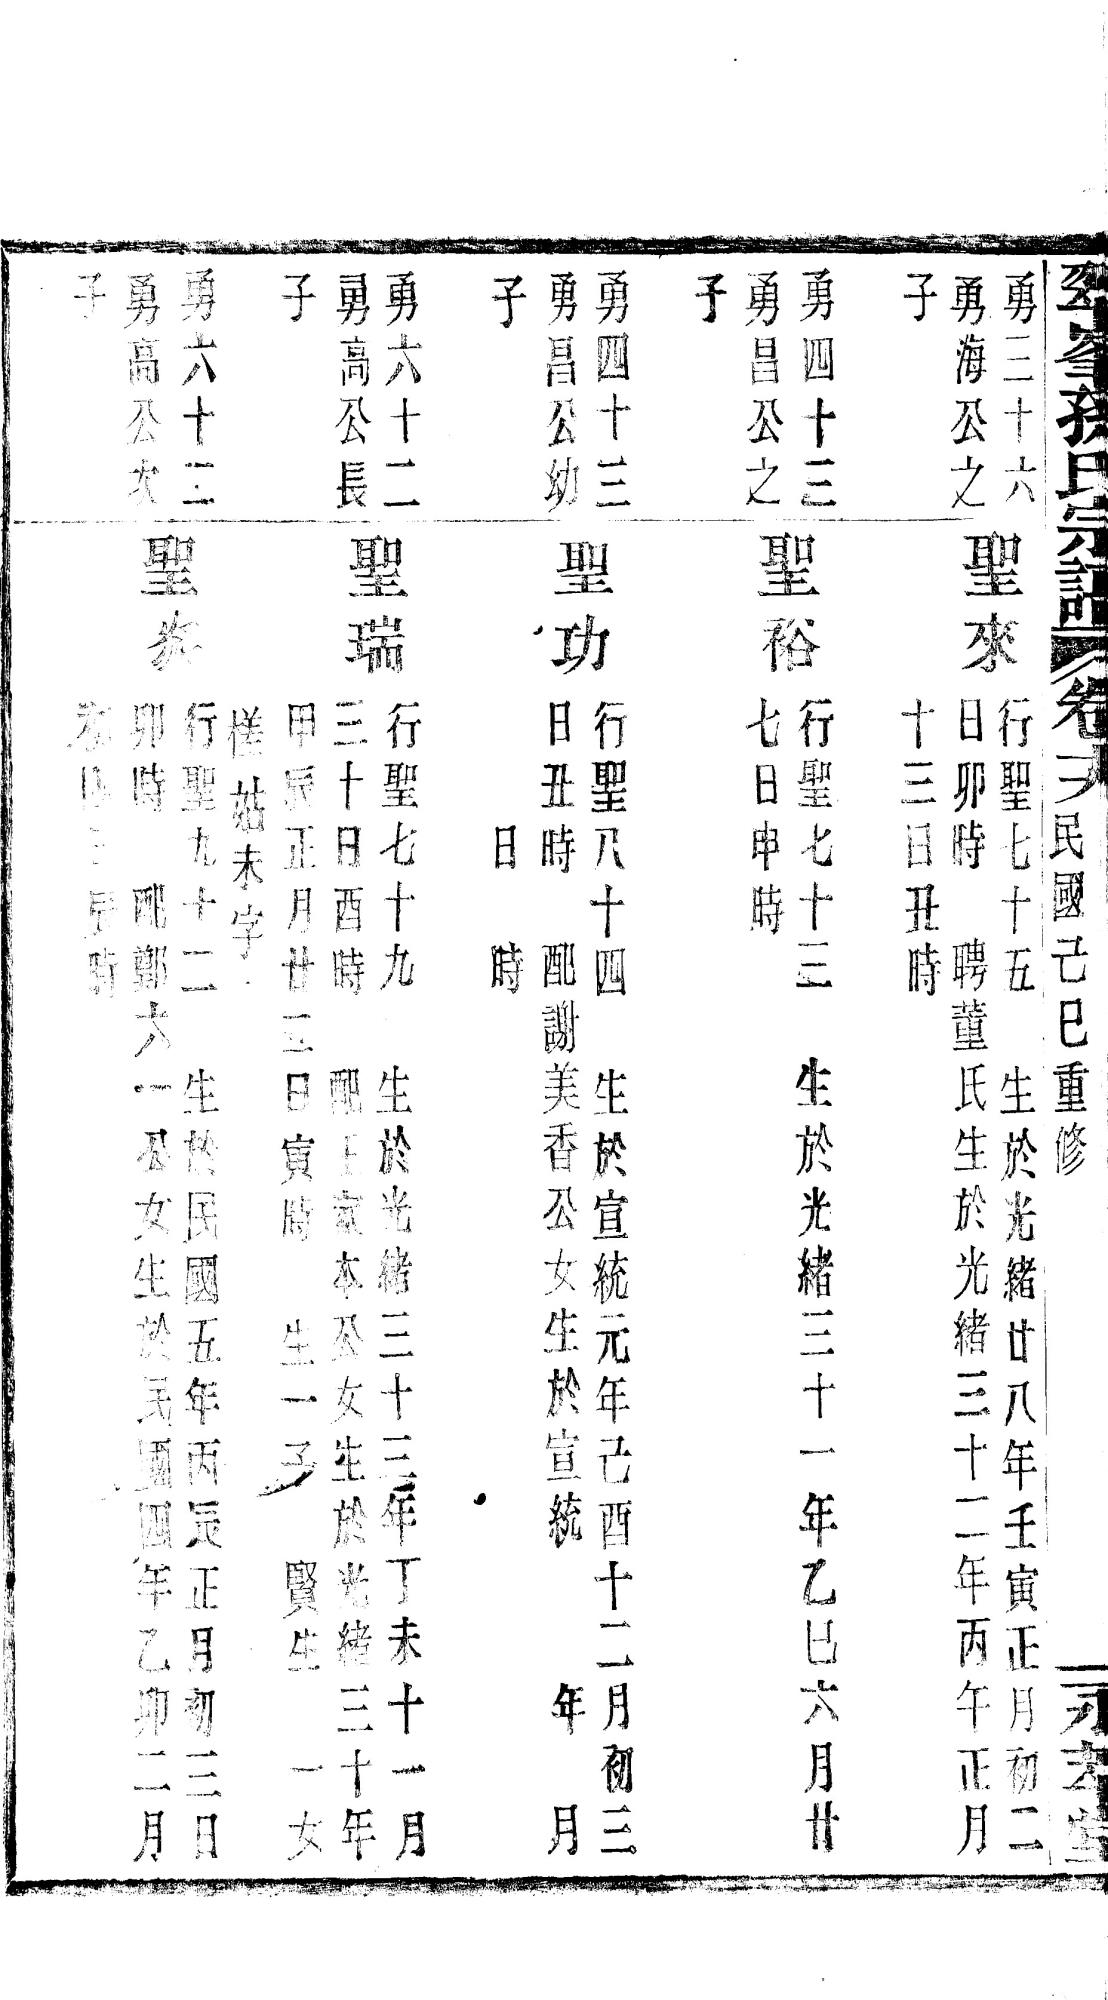 孫氏宗譜 卷 民國己巳重修
勇三十六
勇海公之
子
聖來
行聖七十五 生於光緒廿八年壬寅正月初二
日卯時 聘董氏生於光緒三十二年丙午正月
十三日丑時
勇四十三
勇昌公之
子
聖裕
行聖七十三 生於光緒三十一年乙巳六月廿
七日申時
勇四十三
勇昌公幼
子
聖功
行聖八十四 生於宣統元年己酉十二月初三
日丑時 配謝美香公女生於宣統 年 月
日 時
勇六十二
勇高公長
子
聖瑞
行聖七十九 生於光緒三十三年丁未十一月
三十日酉時 配王 本公女生於光緒三十年
甲辰正月廿三日寅時 生一子 賢生 一女
槎姑未字
勇六十二
勇高公次
子
聖
行聖九十二 生於民國五年丙辰正月初三日
卯時 配鄭六一公女生於民國四年乙卯二月
時